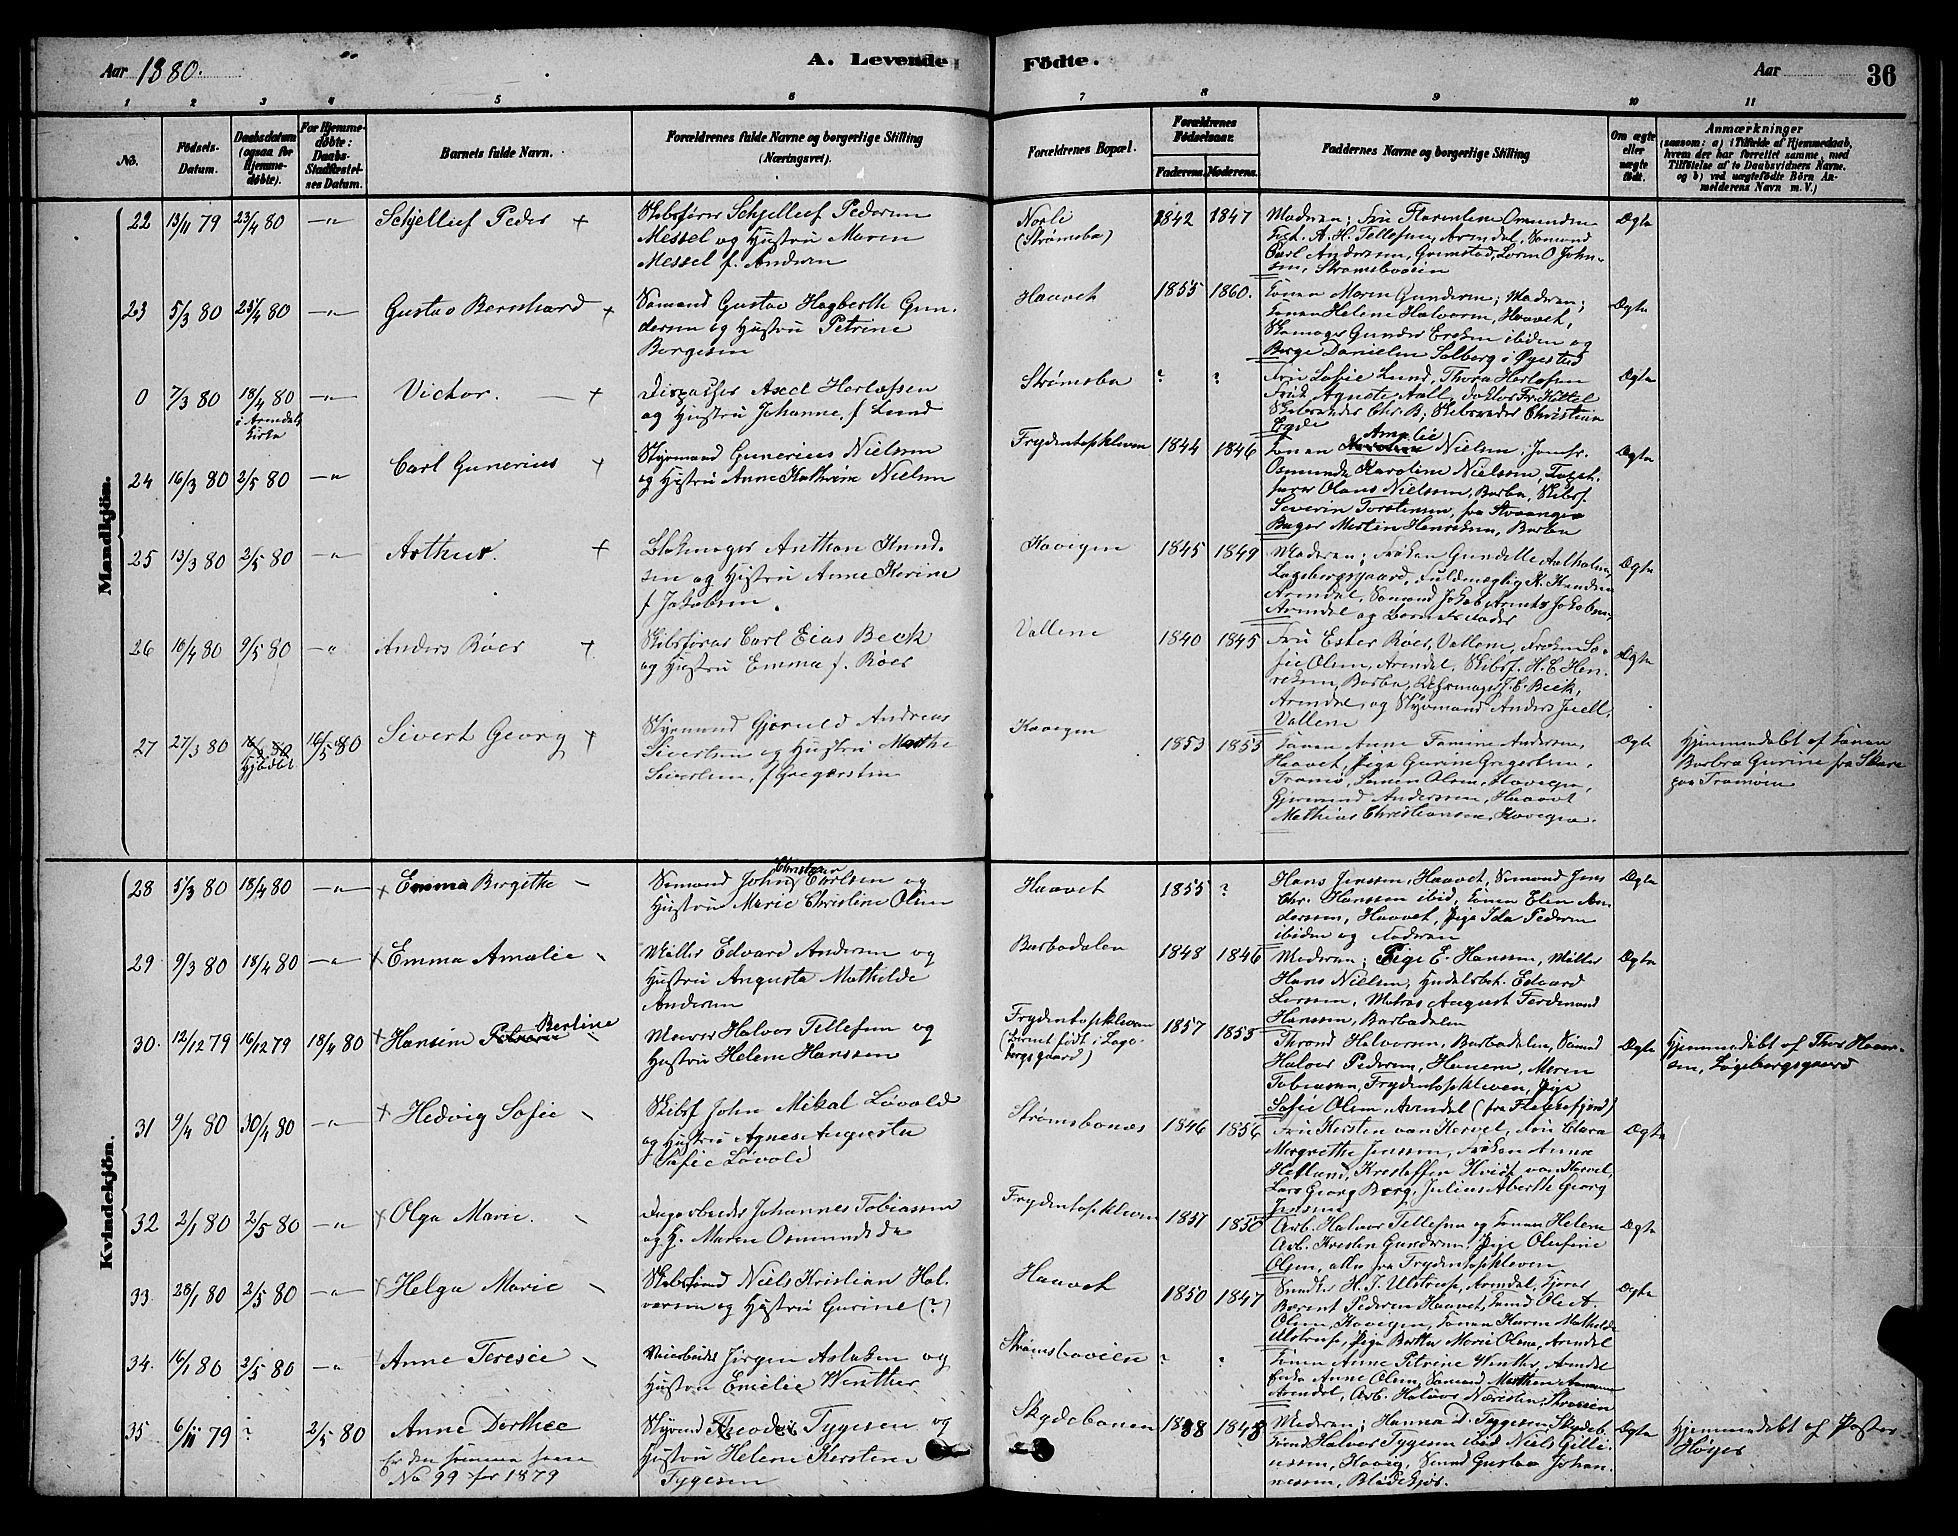 Aar 1880.
A. Levende
Födte.
Aar
36
1 2 3 4 5 6 7 8 9 10 11
No.
Födsels-
Datum.
Daabsdatum
(ogsaa for
Hjemme-
døbte).
For Hjemme-
døbte:
Daabs-
Stadfæstel-
ses Datum.
Barnets fulde Navn.
Forældrenes fulde Navne og borgerlige Stilling
(Næringsvei).
Forældrenes Bopæl.
Forældrenes
Födselsaar.
Faderens. Moderens.
Faddernes Navne og borgerlige Stilling
Om ægte
eller
uægte
født.
Anmærkninger
(saasom: a) i Tilfælde af Hjemmedaab,
hvem der har forrettet samme, med
Tilføielse af to Daabsvidners Navne.
og b) ved uægtefödte Börn An-
melderens Navn m. V.)
Mandkjön.
22 13/11 79 23/4 80 —"— Schjellief Peder +
Skibsfører Schjellief Pedersen
Messel og Hustru Maren
Messel f. Andersen
Norli
(Strømsbo)
1842 1847
Moderen; Fru Florentine Omundsen
A. H. Tellefsen, Arendal, Sømand
Carl Anderssen, Grimstad, Søren O John-
sen, Strømsboeien
Ægte
23 5/3 80 25/4 80 —"— Gustav Bernhard +
Sømand Gustav Hagberth Gun-
dersen og Hustru Petrine
Børgesen
Haavet
1855 1860.
Konen Maren Gundersen; Moderen;
Konen Helene Halvorsen, Haavet,
Skomager Gunder Ersken ibiden og
Børge Danielsen Solberg i Øyestad
Ægte
0 7/3 80 18/4 80
i Arendals
Kirke
—"— Victor. — +
Dispasher Axel Herlofsen
og Hustru Johanne, f Lund
Strømsbo
? ?
Fru Sofie Lund, Thora Herlofsen
Frøk Agnete Aall, Doktor Fr Kittel
Skibsreder Chr. B; Skibsreder Christian
Eyde
Ægte
24 16/3 80 2/5 80 —"— Carl Gunerius +
Styrmand Gunerius Nielsen
og Hustru Anne Kathrine Nielsen
Frydentopkleven
1844 1846
Konen Amalie Nielsen, Jomfr.
Osmunde Karoline Nielsen,
Olaus Nielsen, Barbo, Skibsf.
Severin Torstensen, fra Stavanger
Bager Martin Henriksen, Barbo
Ægte
25 13/3 80 2/5 80 —"— Arthur. +
Blokmager Anthon Knud-
sen og Hustru Anne Kirine
f Jakobsen.
Kavigen
1845 1849
Moderen; Frøken Gundelle Aalholm,
Langbergsgaard, Fuldmægtig K. Knudsen
Arendal, Sømand Jakob Arnts Jakobsen,
Arendal og Barnets Fader
Ægte
26 16/4 80 9/5 80 —"— Anders Röer +
Skibsfører Carl Eias Beck
og Hustru Emma f. Röer
Vallene
1840 1845
Fru Ester Röer, Vallene, Frøken So-
fie Olsen, Arendal, Skibsf. H. E Hen-
riksen, Barbo, Uhrmager J. C. Beck,
Arendal, og Styrmand Anders Juell,
Vallene
Ægte
27 27/3 80 Hjdøbt 16/5 80 Sivert Georg +
Styrmand Gjeruld Andreas
Sivertsen og Hustru Mathe
Sivertsen, f Gregersen
Kavigen
1853 1855
Konen Anne Tomine Andersen,
Haavet, Pige Gurine Gregersen,
Tromø, Simen Olsen, Kavigen,
Gjermund Anderssen, Haavet
Mathias Christiansen, Kavigen.
Ægte
Hjemmedøbt af Konen
Barbra Gurine fra Skare
paa Tromøen
Kvindekjön.
28 5/3 80 18/4 80 —"— + Emma Birgithe —
Sømand John Christian Carlsen og
Hustru Marie Christine Olsen
Haavet
1855 ?
Hans Jenssen, Haavet, Sømand Jens
Chr. Hanssen ibid, Konen Elen An-
derssen, Haavet, Pige Ida Pedersen
ibiden og Faderen
Ægte
29 9/3 80 18/4 80 —"— + Emma Amalie —
Møller Edvard Andersen og
Hustru Augusta Mathilde
Andersen
Barbodalen
1848 1846
Moderen; Pige E. Hanssen, Møller
Hans Nielsen, Edvard
Larssen, Matros August Ferdinand
Hanssen, Barbodalen
Ægte
30. 12/12 79 16/12 79 18/4 80 + Hansine Bertine
Murer Halvor Tellefsen og
Hustru Helene Hanssen
Frydentopkleven
(Barnet født i Lange-
bergsgaard)
1857 1855
Thrond Halvorsen, Barbodalen, Sømand
Halvor Pedersen, Havnen, Maren
Tobiassen, Frydentopkleven, Pige
Sofie Olsen Arendal (fra Flekkefjord)
Ægte
Hjemmedøbt af Thor Haaer-
sen, Langebergsgaard
31 9/4 80 30/4 80 —"— + Hedvig Sofie —
Skibsf John Mikal Løvold
og Hustru Agnes Augusta
f Sofie Løvold
Strømsbonæs
1846 1856
Fru Kirsten van Kervel, Fru Clara
Margrethe Jenssen, Frøken Anna
Hetland, Kristoffer Hvist van Kervel,
Lars Georg Berg, Julius Alberth Georg
Jenssen
Ægte
32 2/1 80 2/5 80 —"— + Olga Marie. —
Dagarbeider Johannes Tobiassen
og H. Maren Osmundsdr
Frydentopkleven
1857 1850
Arb. Halvor Tellefsen og Konen Helene
Arb. Kristen Gundersen, Pige Olufine
Olsen, alle fra Frydentopkleven
Ægte
33 28/1 80 2/5 80 —"— + Helga Marie —
Skibstmd Niels Kristian Hal-
vorsen og Hustru Gurine (?)
Haavet
1850 1847
Snedker H. J. Ulstrup, Arendal,
Berent Pedersen Haavet, Tmd Ole A.
Olsen, Kavigen, Konen Karen Mathilde
Ulstrup, Pige Berthe Marie Olsen, Arendal
Ægte
34. 16/1 80 2/5 80 —"— + Anne Teresie —
Veiarbeider Jörgen Aslaksen og
Hustru Emelie Winther
Strømsboveien
? ?
Konen Anne Petrine Winther, Arendal
Anne Olsen, Sømand Mathias
Arendal, Arb. Halvor
Ægte
35 6/11 79 ? 2/5 80 Anne Dorthee
Er den samme som
No 99 for 1879
Styrmd Theodor Tygesen og
Hustru Helene Kirstine
Tygesen
Skydebanen
1838 1848
Moderen; Hanna D. Tygesen Skydeb.
Tømd Halvor Tygesen ibid Niels Gille-
ussen, Havig, Sømd Gustav Johan-
nessen, Blødekjær.
Ægte
Hjemmedøbt af Pastor
Høyer